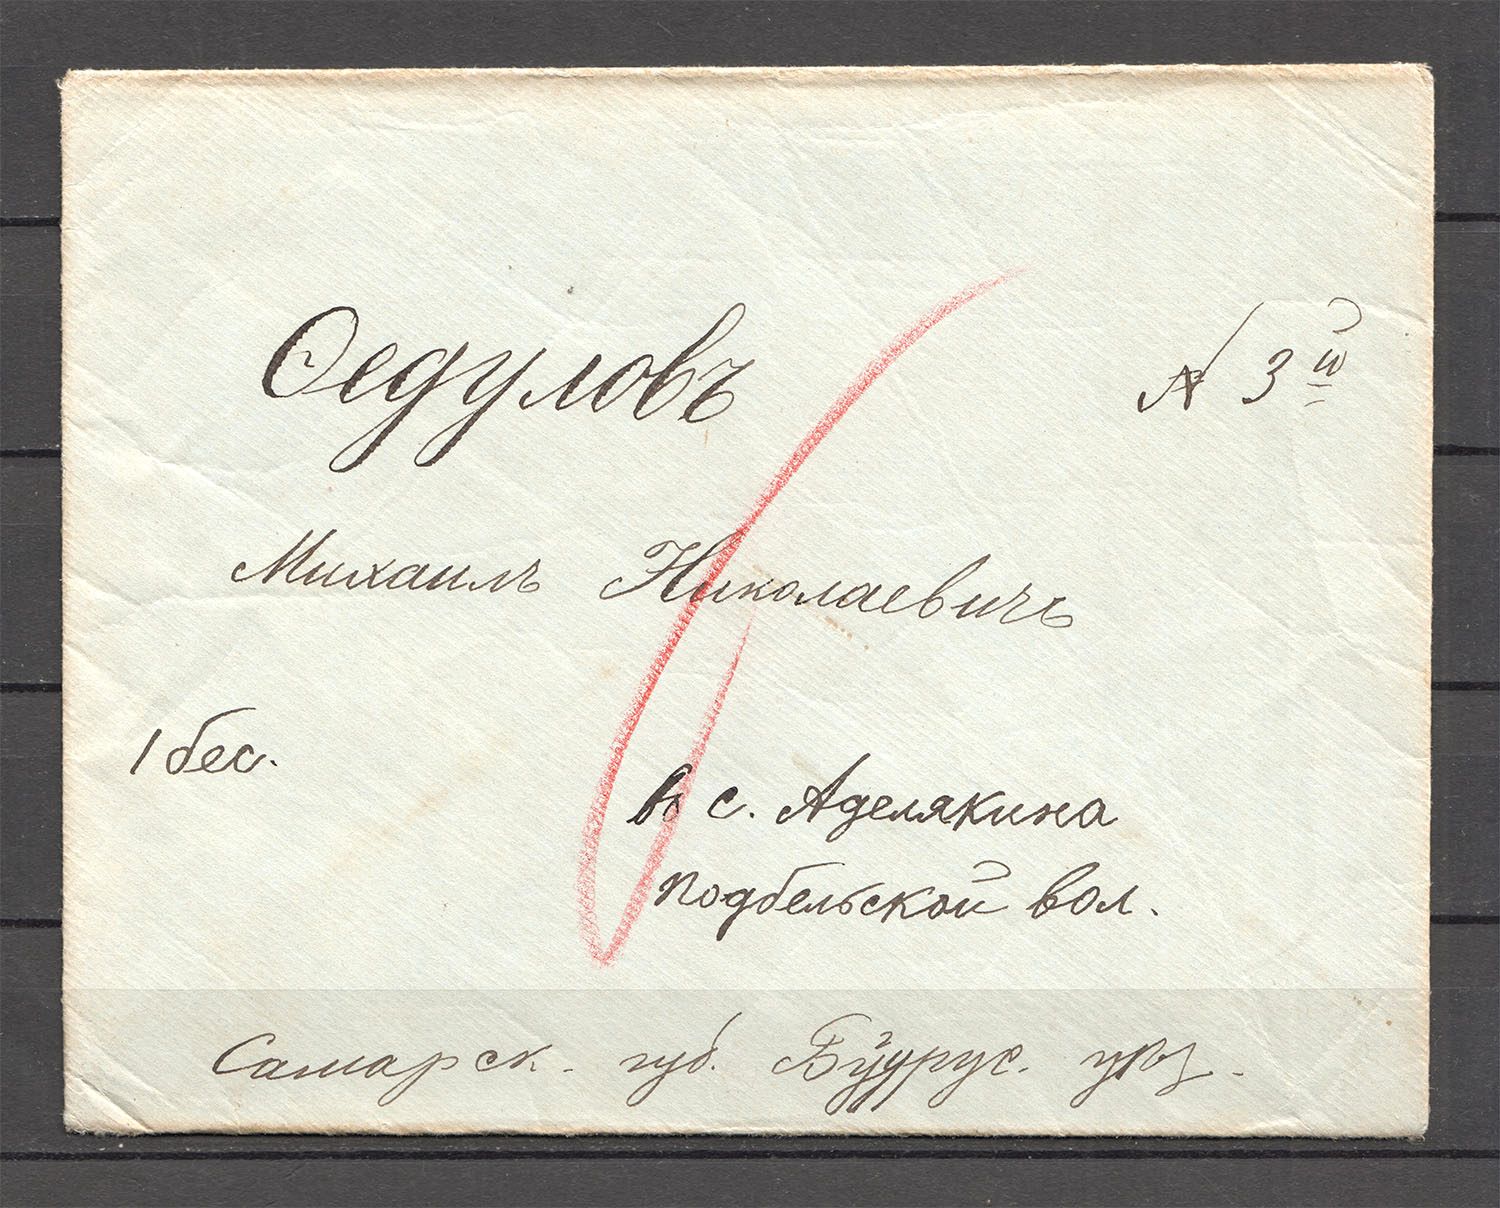 Ѳедуловъ
№ 3й
Михаилъ Николаевичъ
1 бес.
въ с. Аделякина
Подбельской вол.
Самарск. губ. Бугурус. уѣз.